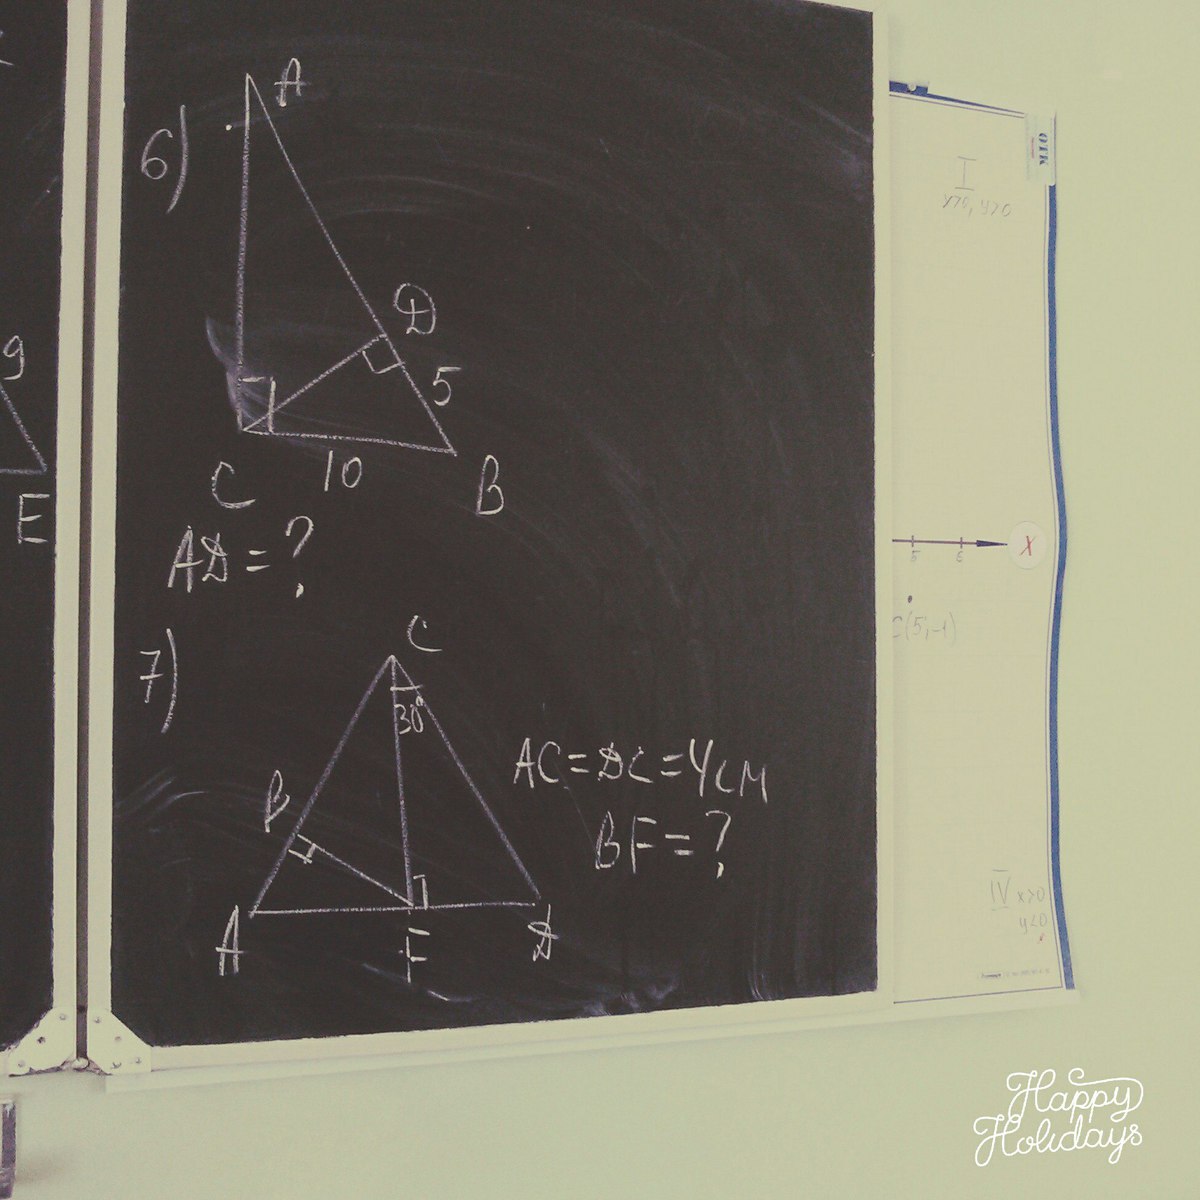 6)
A
D
5
C
10
B
AD = ?
9
E
7)
C
30°
B
A
F
D
AC = DC = 4см
BF = ?
ОТК
I
x>0, y>0
5
6
X
C(5;-1)
IV x>0
y<0
Happy
Holidays